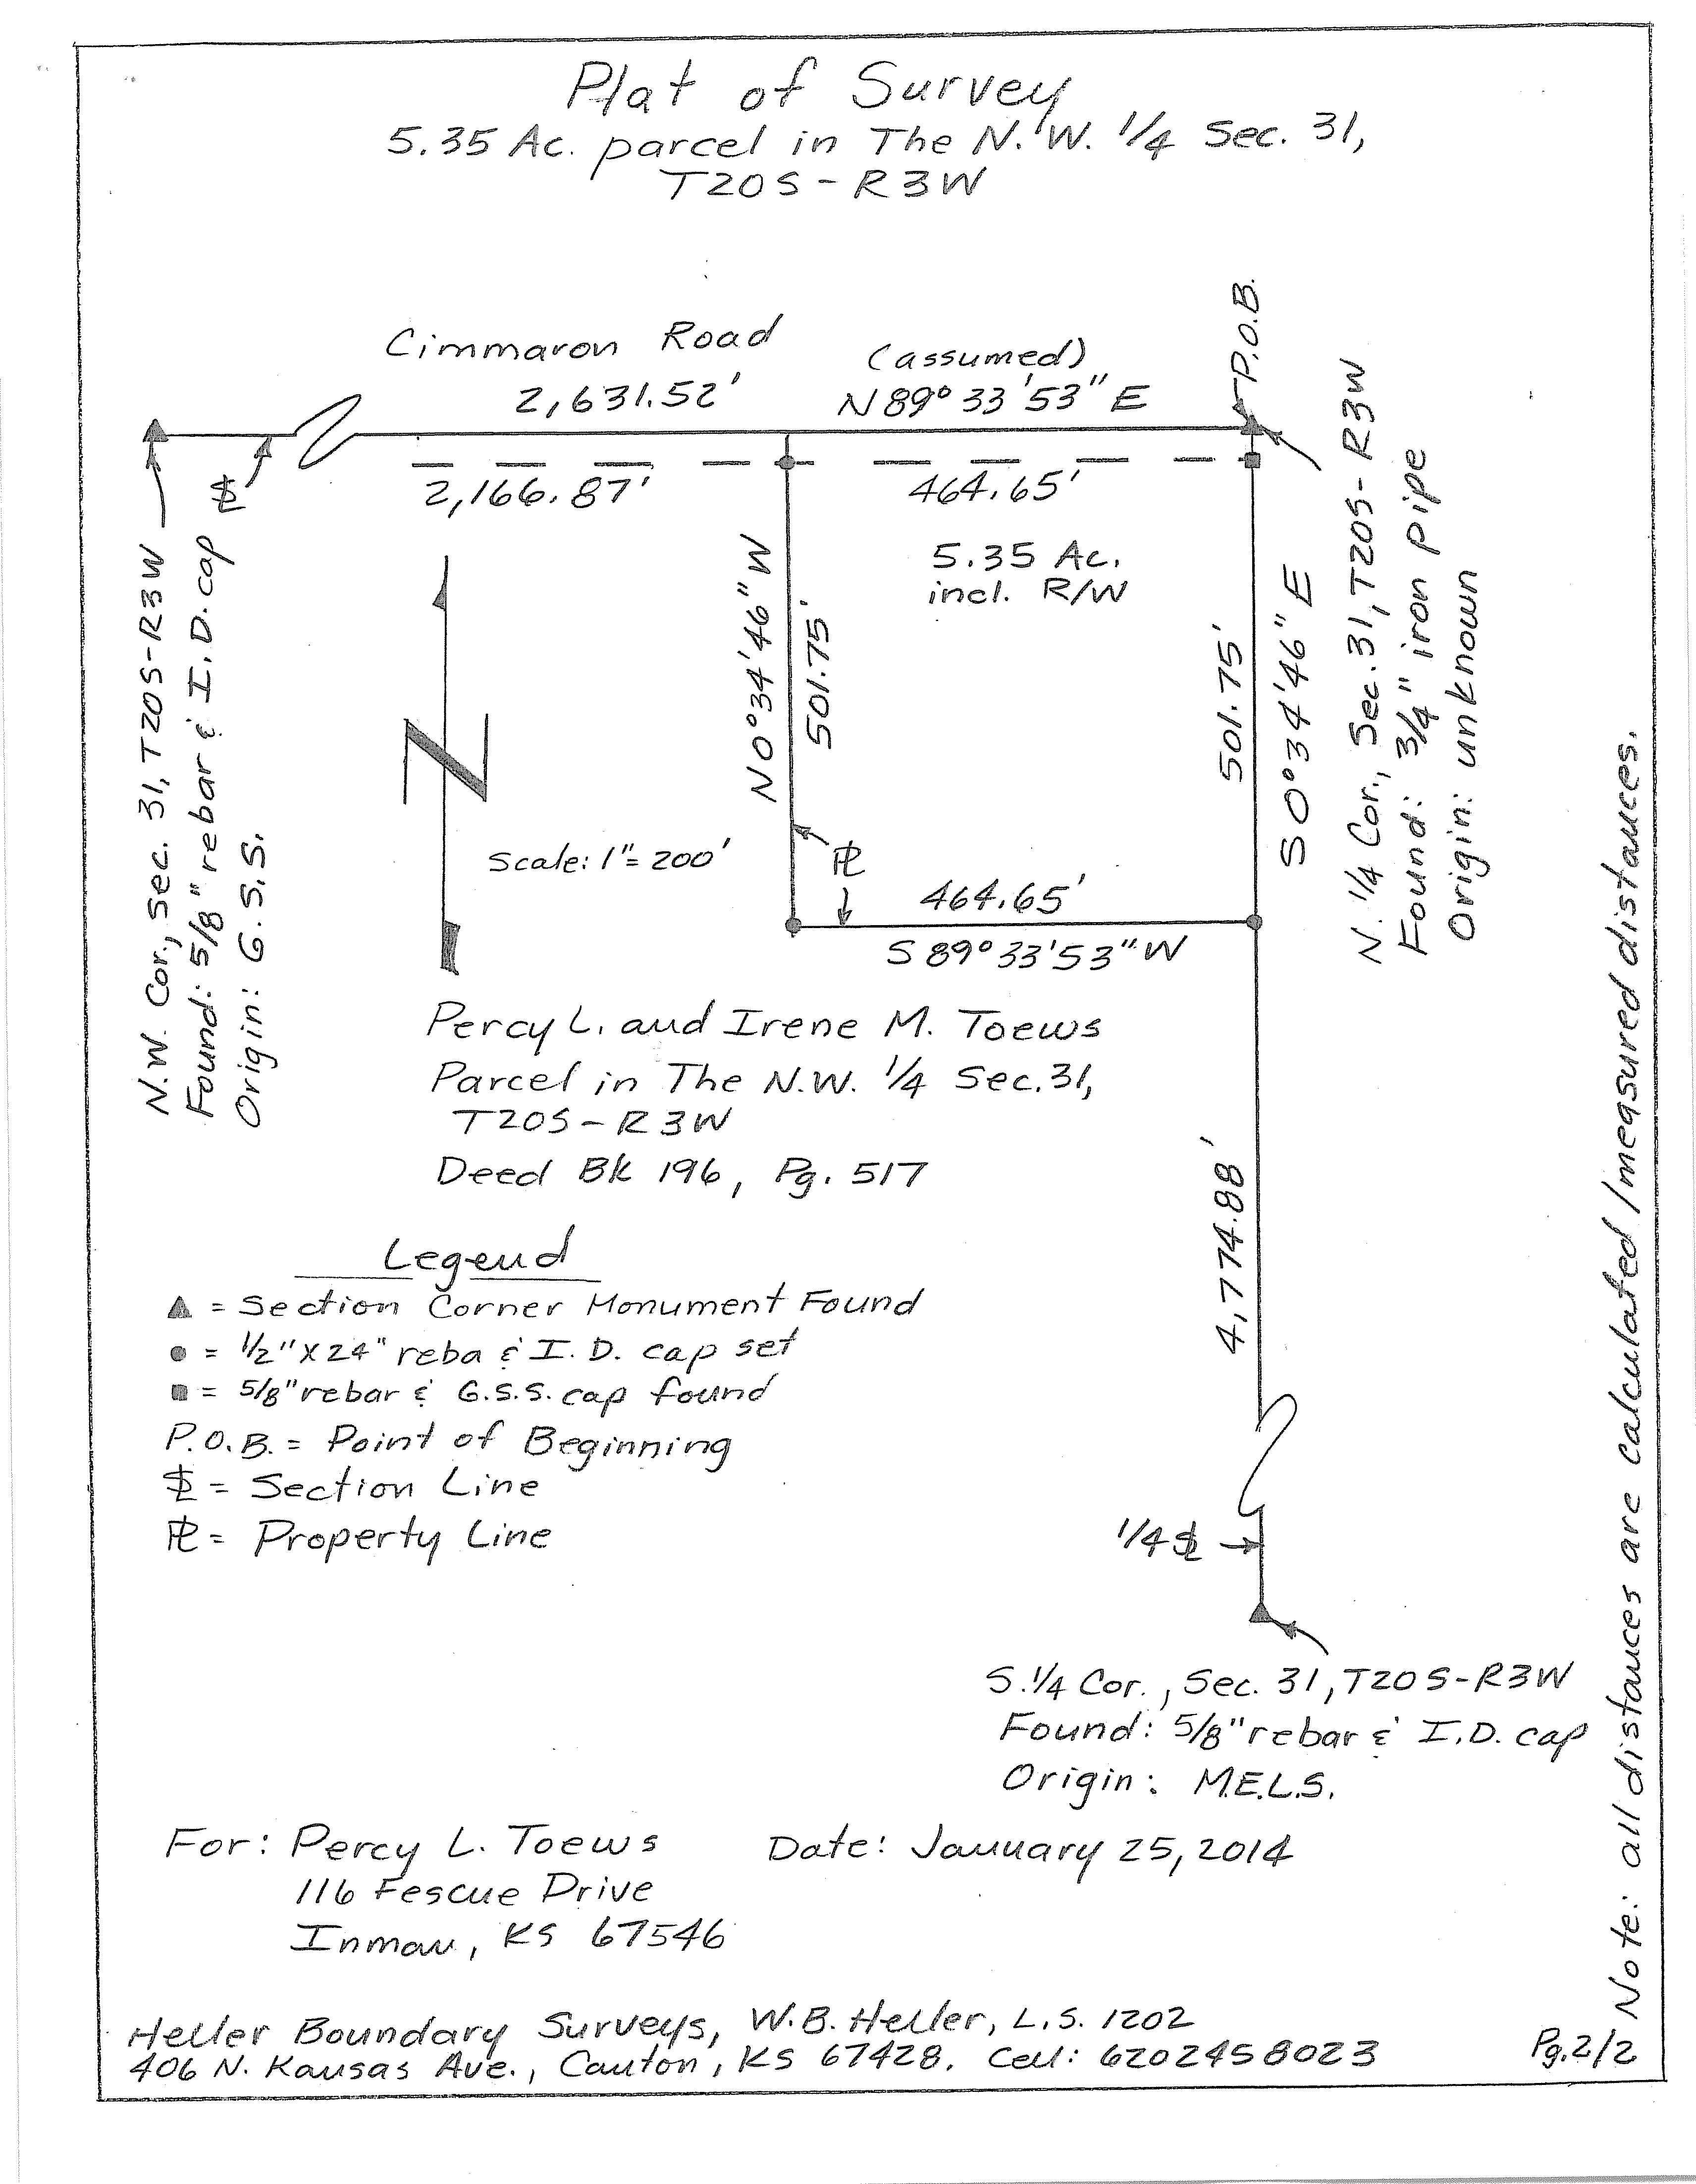 Plat of Survey
5.35 Ac. parcel in The N.W. 1/4 Sec. 31,
T20S-R3W
Cimmaron Road
(assumed)
2,631.52'
N89°33'53"E
P.O.B.
2,166.87'
464.65'
5.35 Ac.
incl. R/W
N0°34'46"W
501.75'
501.75'
S0°34'46"E
N.W. Cor., Sec. 31, T20S-R3W
Found: 5/8" rebar & I.D. cap
Origin: G.S.S.
SL
N. 1/4 Cor., Sec. 31, T20S-R3W
Found: 3/4" iron pipe
Origin: unknown
N
Scale: 1"=200'
PL
464.65'
S89°33'53"W
Percy L. and Irene M. Toews
Parcel in The N.W. 1/4 Sec. 31,
T20S-R3W
Deed Bk 196, Pg. 517
4,774.88'
Legend
▲ = Section Corner Monument Found
● = 1/2"x24" reba & I.D. cap set
■ = 5/8" rebar & G.S.S. cap found
P.O.B. = Point of Beginning
SL = Section Line
PL = Property Line
1/4 SL
S. 1/4 Cor., Sec. 31, T20S-R3W
Found: 5/8" rebar & I.D. cap
Origin: M.E.L.S.
For: Percy L. Toews
116 Fescue Drive
Inman, KS 67546
Date: January 25, 2014
Heller Boundary Surveys, W.B. Heller, L.S. 1202
406 N. Kansas Ave., Canton, KS 67428. Cell: 6202458023
Pg. 2/2
Note: all distances are calculated/measured distances.